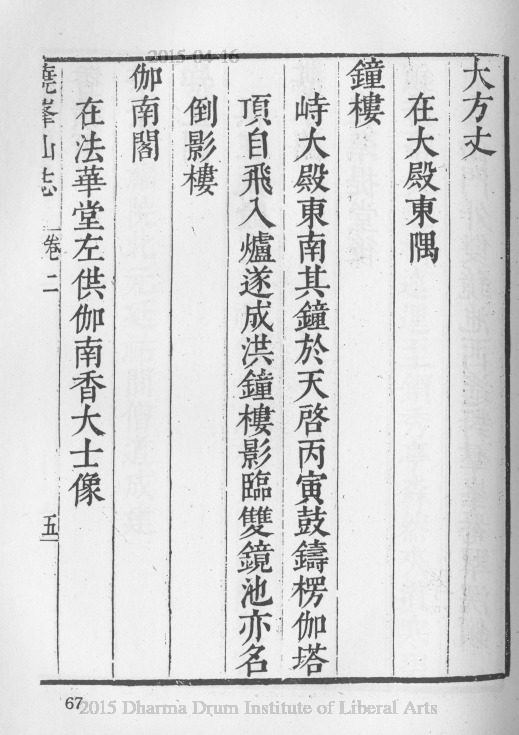 2015-04-16
大方丈
在大殿東隅
鐘樓
峙大殿東南其鐘於天啓丙寅鼓鑄楞伽塔
頂自飛入爐遂成洪鐘樓影臨雙鏡池亦名
倒影樓
伽南閣
在法華堂左供伽南香大士像
堯峯山志 卷二 五
67
2015 Dharma Drum Institute of Liberal Arts